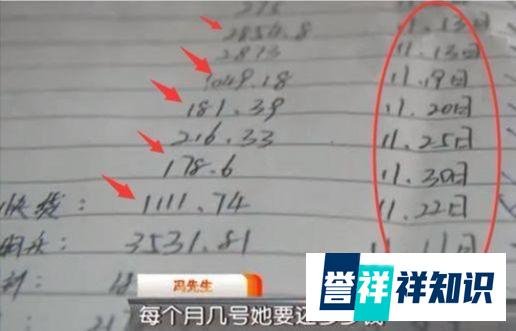 2854.8 11.13日
2873 11.13日
1049.18 11.19日
181.39 11.20日
216.33 11.25日
178.6 11.30日
快贷： 1111.74 11.22日
3531.81 11.11日
冯先生
每个月几号她要还多少钱
誉祥祥知识